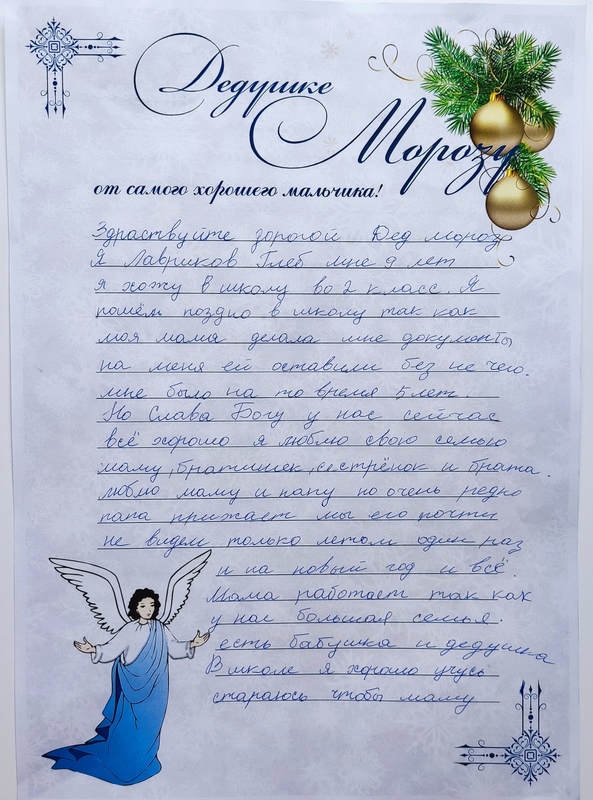 Дедушке
Морозу
от самого хорошего мальчика!
Здраствуйте дорогой Дед мороз
Я Лавриков Глеб мне 9 лет
я хожу в школу во 2 класс. Я
пошём поздно в школу так как
моя мама делала мне документы
на меня ей оставили без не чего.
мне было на то время 5 лет.
Но Слава Богу у нас сейчас
всё хорошо я люблю свою семью
маму, братишек, сестрёнок и брата.
люблю маму и папу но очень редко
папа прижает мы его почти
не видем только летом один раз
и на новый год и всё.
Мама работает так как
у нас большая семья.
есть бабушка и дедушка
В школе я хорошо учусь
стараюсь чтобы маму